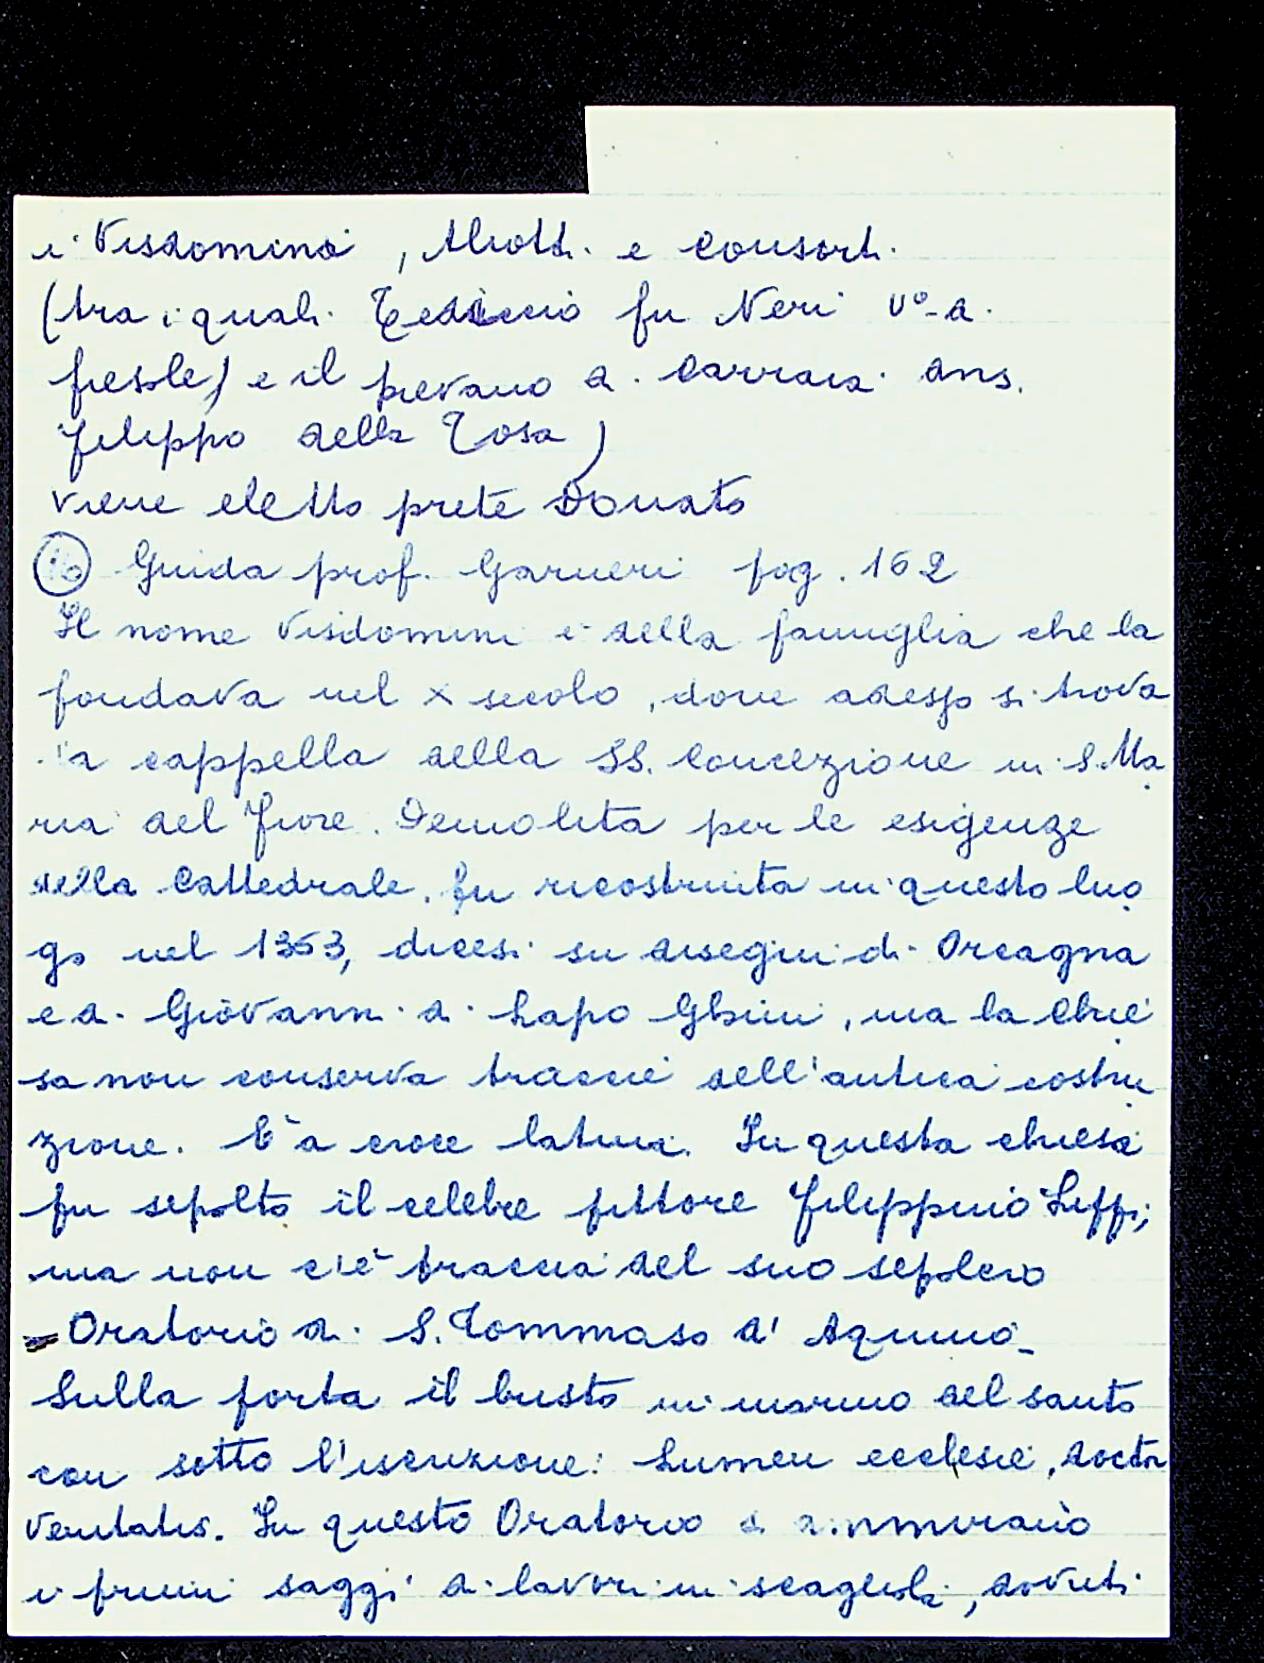 i Visdomini, Aliotti e consorti
(tra i quali Tedicció fu Neri v° di
Fiesole) e il pievano di Carraia ans.
Filippo della Tosa)
viene eletto prete Donato
Guida prof. Garneri pag. 162
Il nome Visdomini è della famiglia che la
fondava nel X secolo, dove adesso si trova
la cappella della SS. Concezione in S. Ma
ria del Fiore. Demolita per le esigenze
della Cattedrale, fu ricostruita in questo luo
go nel 1363, dicesi su disegni di Orcagna
e di Giovanni di Lapo Ghini, ma la Chie
sa non conserva traccie dell'antica costru
zione. È a croce latina. In questa chiesa
fu sepolto il celebre pittore Filippino Lippi;
ma non c'è traccia del suo sepolcro
- Oratorio di S. Tommaso d'Aquino -
Sulla porta il busto in marmo del santo
con sotto l'iscrizione: Lumen ecclesie, doctor
veritatis. In questo Oratorio si ammirano
i primi saggi di lavori in scagliola, dovuti